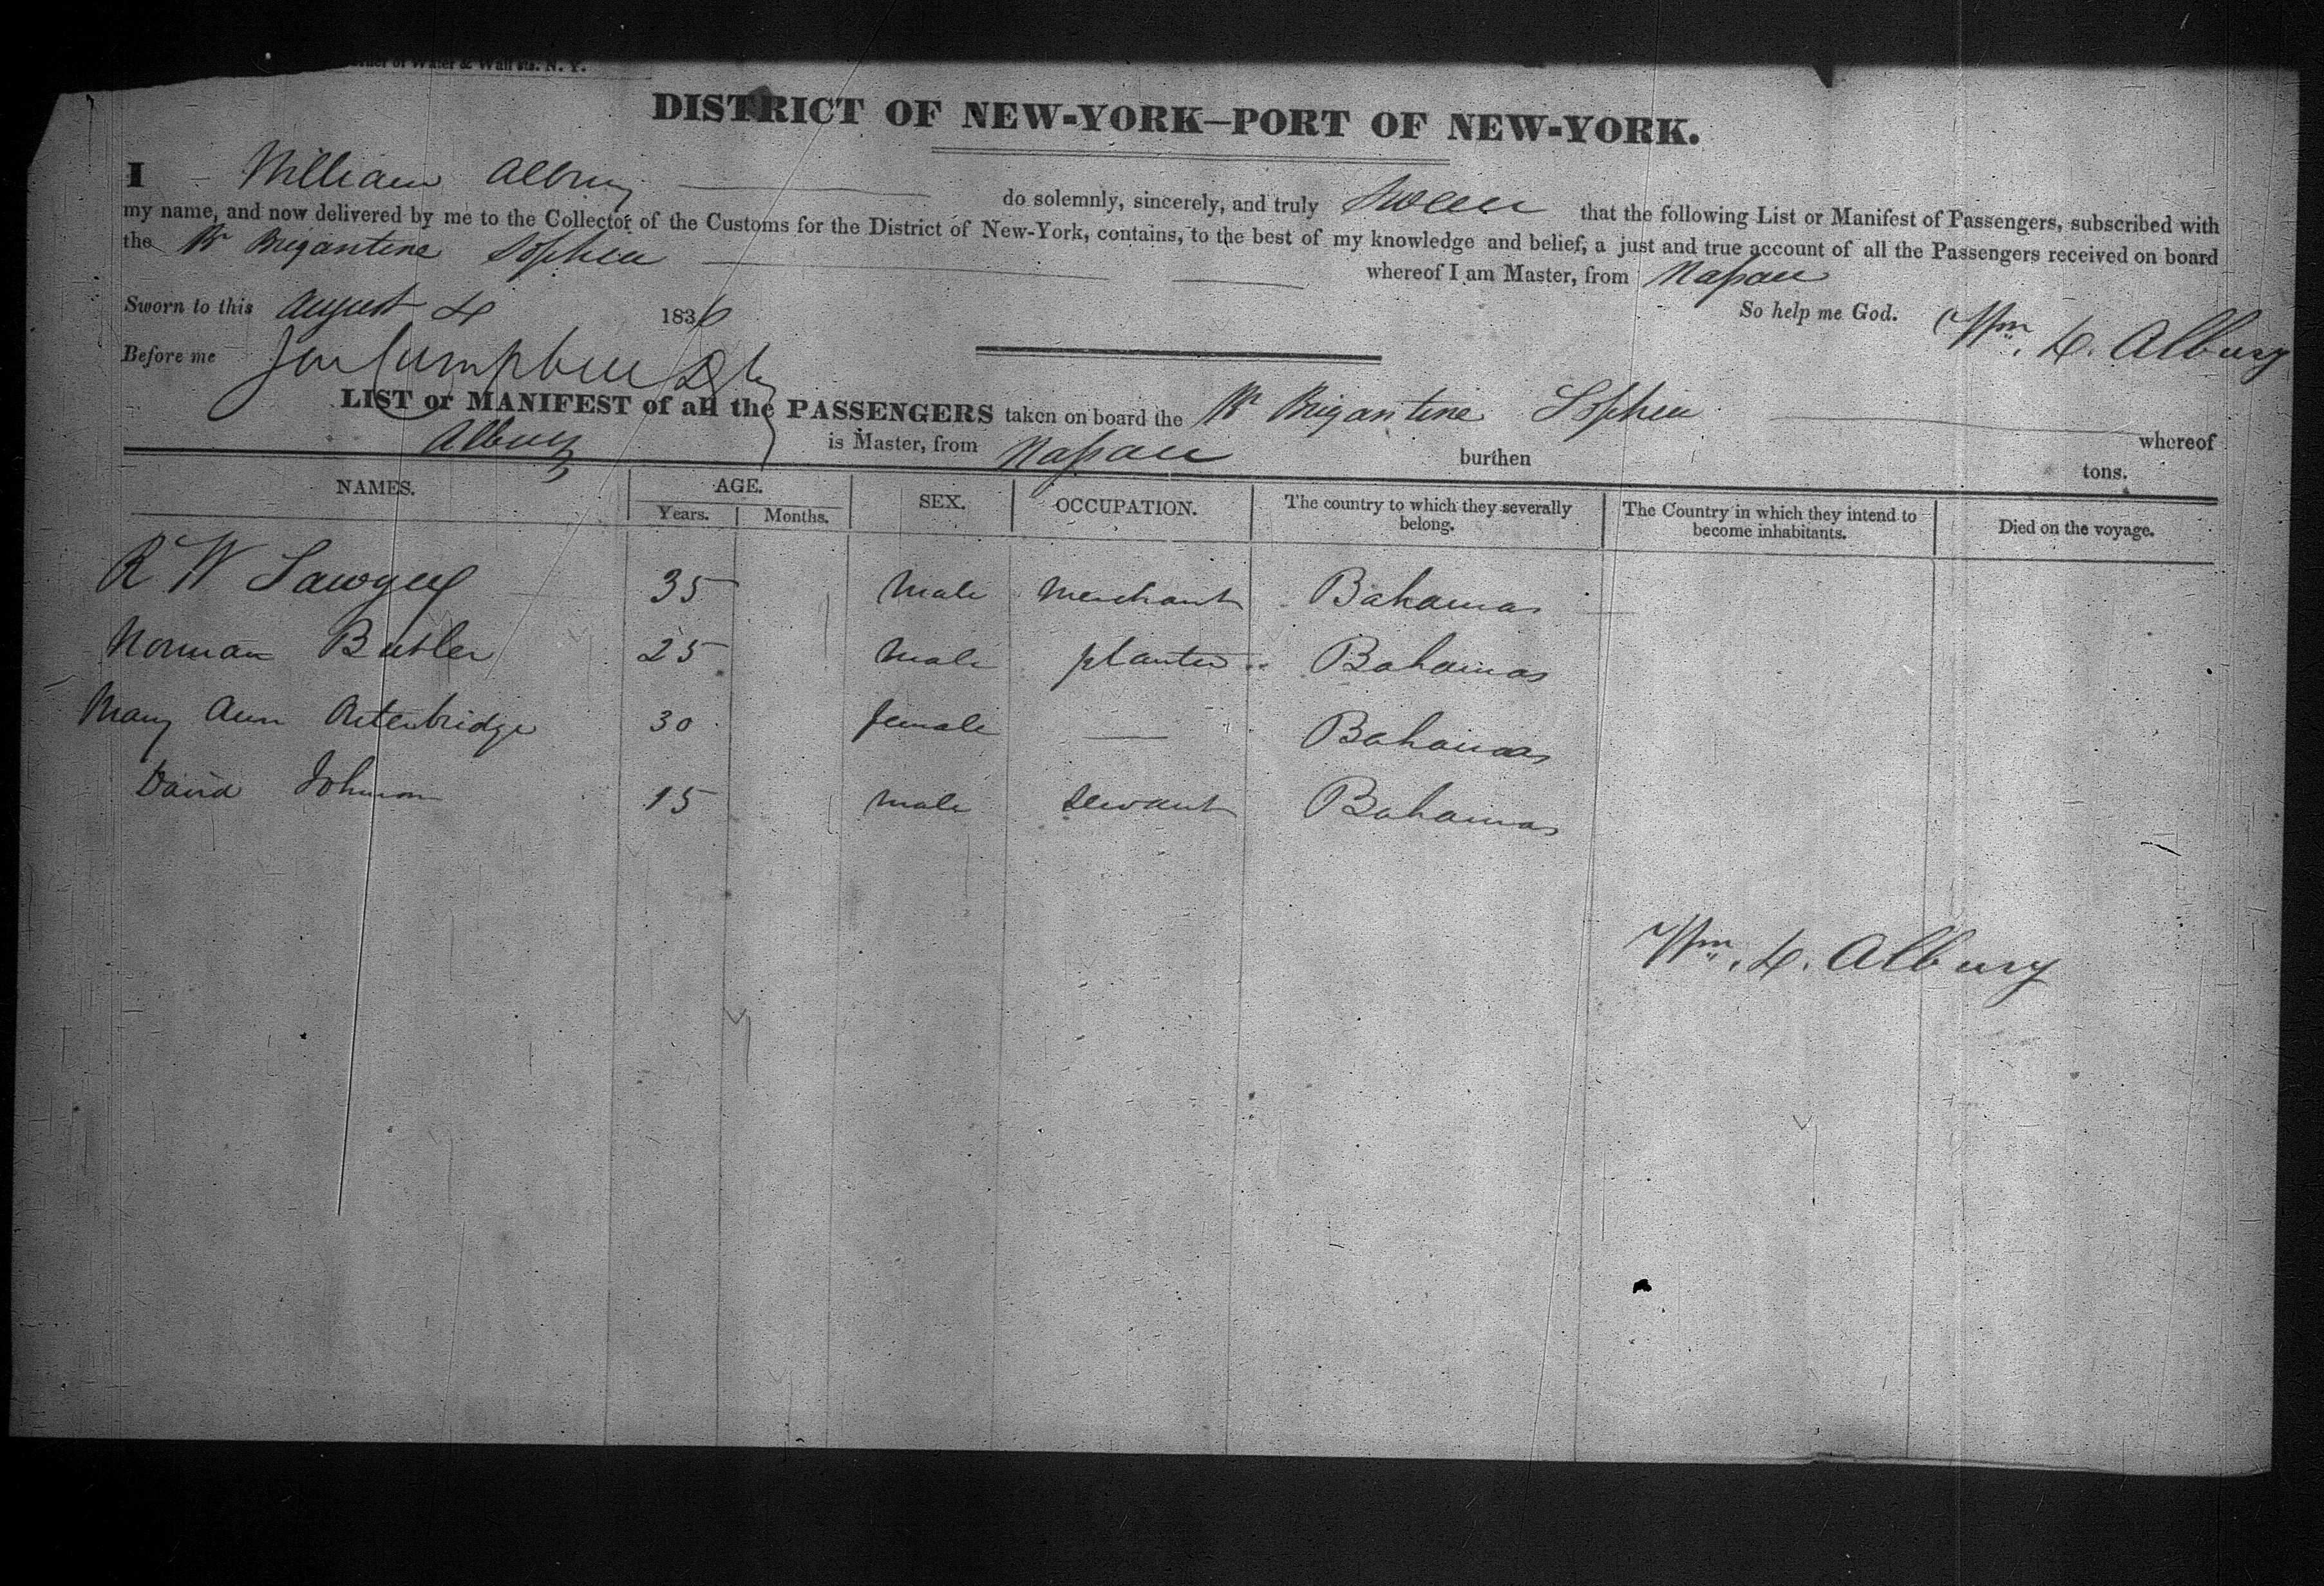 Corner of Water & Wall sts. N. Y.
DISTRICT OF NEW-YORK—PORT OF NEW-YORK.
I William Albury do solemnly, sincerely, and truly Swear that the following List or Manifest of Passengers, subscribed with
my name, and now delivered by me to the Collector of the Customs for the District of New-York, contains, to the best of my knowledge and belief, a just and true account of all the Passengers received on board
the Br Brigantine Sophia whereof I am Master, from Nassau
Sworn to this August 4 1836 So help me God. Wm. L. Albury
Before me Campbell
LIST or MANIFEST of all the PASSENGERS taken on board the Br Brigantine Sophia whereof
Albury is Master, from Nassau burthen tons.
NAMES. AGE. SEX. OCCUPATION. The country to which they severally belong. The Country in which they intend to become inhabitants. Died on the voyage.
Years. Months.
R W Sawyer 35 Male Merchant Bahamas
Norman Butler 25 Male planter Bahamas
Mary Ann 30 female — Bahamas
David Johnson 15 male servant Bahamas
Wm. L. Albury